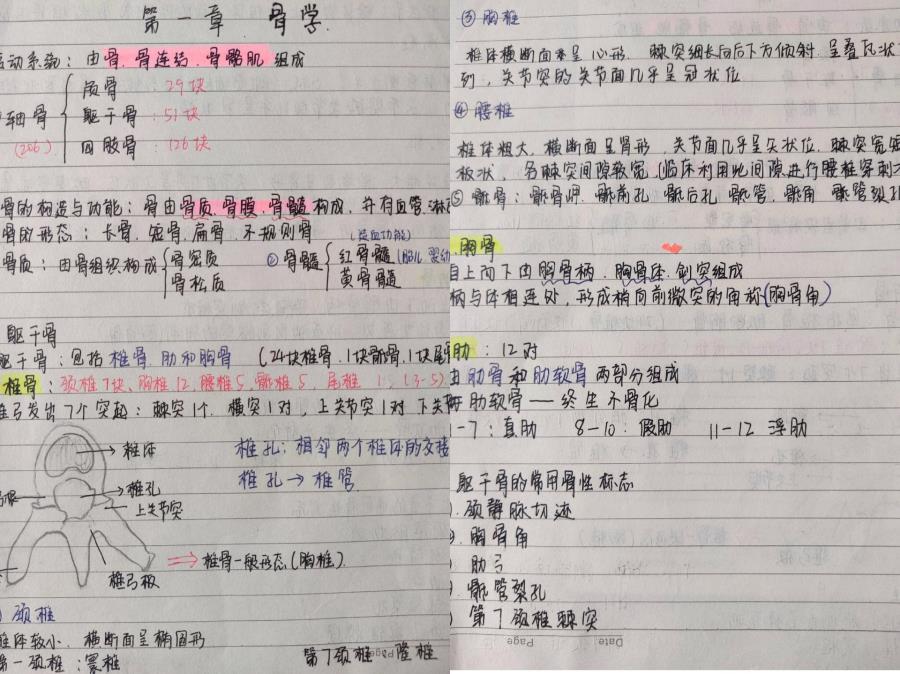 第一章 骨学
运动系统:由骨、骨连结、骨骼肌 组成
中轴骨
(206)
颅骨:29块
躯干骨:51块
四肢骨:126块
骨的构造与功能:骨由骨质、骨膜、骨髓构成,并有血管、淋
骨的形态:长骨、短骨、扁骨、不规则骨
(造血功能)
骨质:由骨组织构成
骨密质
骨松质
② 骨髓
红骨髓(胎儿 婴幼
黄骨髓
躯干骨
躯干骨:包括椎骨、肋和胸骨 (24块椎骨、1块骶骨、1块尾
椎骨:颈椎7块、胸椎12、腰椎5、骶椎5、尾椎 1:(3-5)
椎弓发出7个突起:棘突1个、横突1对,上关节突1对 下关
椎体
椎孔
上关节突
椎弓板
椎孔:相邻两个椎体的交接
椎孔→椎管
⇒椎骨一般形态(胸椎)
颈椎
椎体较小、横断面呈椭圆形
第一颈椎:寰椎 第7颈椎 隆椎
Page
③ 胸椎
椎体横断面来呈心形、棘突细长向后下方倾斜,呈叠瓦状
列,关节突的关节面几乎呈冠状位
④ 腰椎
椎体粗大,横断面呈肾形,关节面几乎呈矢状位,棘突宽短
板状,各棘突间隙较宽,(临床利用此间隙进行腰椎穿刺
⑤ 骶骨:骶骨岬、骶前孔 骶后孔 骶管、骶角 骶管裂孔
胸骨
自上而下由胸骨柄、胸骨体、剑突组成
柄与体相连处,形成稍向前微突的角称(胸骨角)
肋:12对
由肋骨和肋软骨两部分组成
肋软骨——终生不骨化
1-7:真肋 8-10:假肋 11-12 浮肋
躯干骨的常用骨性标志
颈静脉切迹
胸骨角
肋弓
骶管裂孔
第7颈椎棘突
Date Page